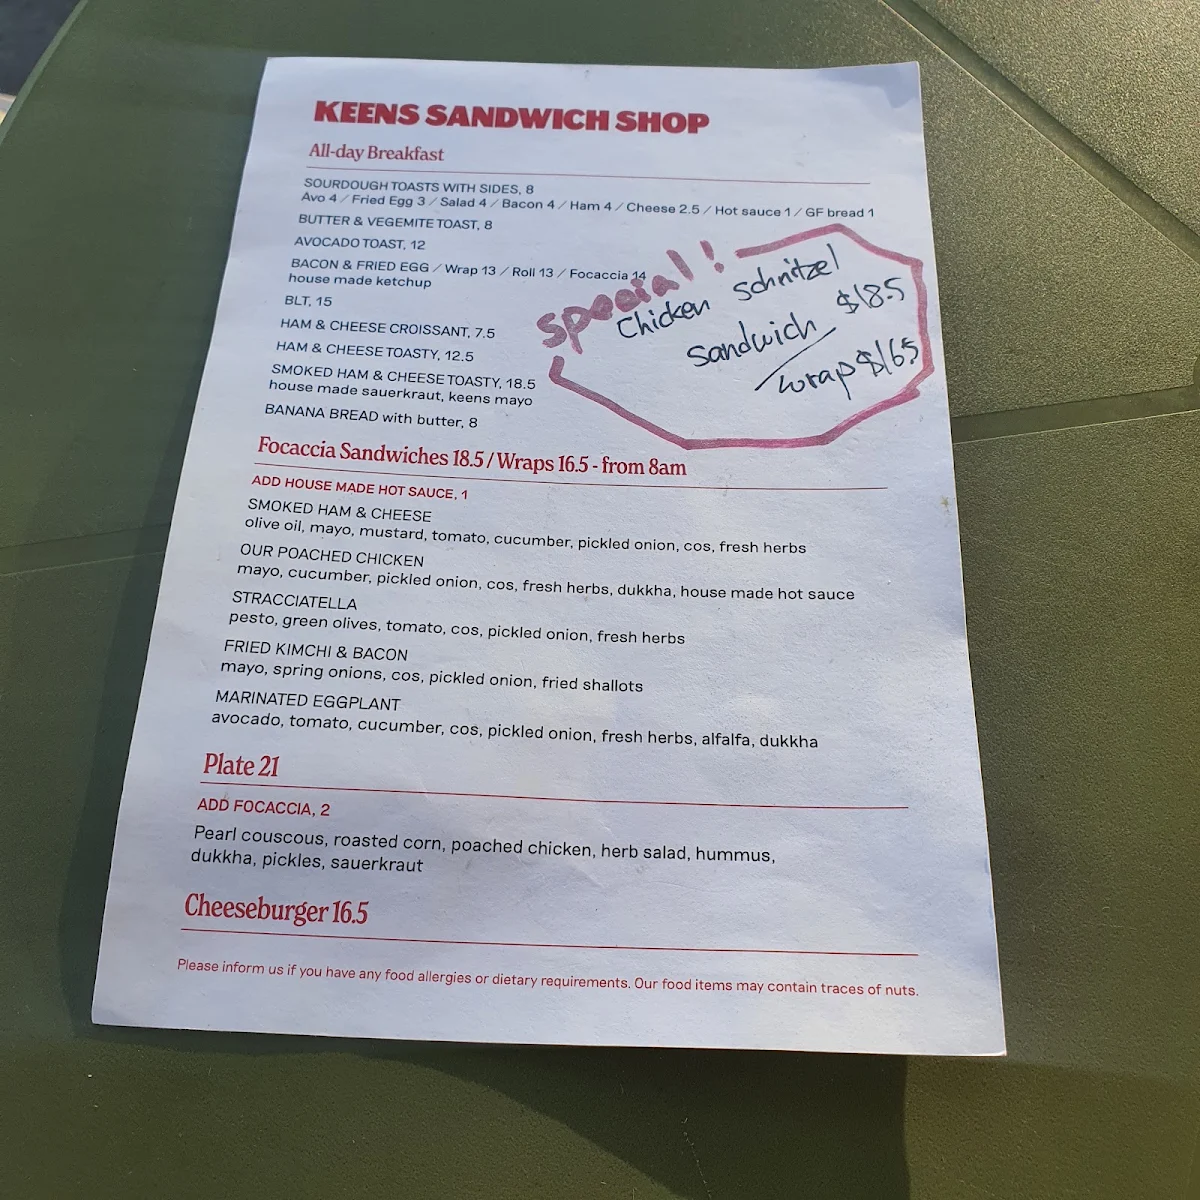 KEENS SANDWICH SHOP
All-day Breakfast
SOURDOUGH TOASTS WITH SIDES, 8
Avo 4 / Fried Egg 3 / Salad 4 / Bacon 4 / Ham 4 / Cheese 2.5 / Hot sauce 1 / GF bread 1
BUTTER & VEGEMITE TOAST, 8
AVOCADO TOAST, 12
BACON & FRIED EGG / Wrap 13 / Roll 13 / Focaccia 14
house made ketchup
BLT, 15
HAM & CHEESE CROISSANT, 7.5
HAM & CHEESE TOASTY, 12.5
SMOKED HAM & CHEESE TOASTY, 18.5
house made sauerkraut, keens mayo
BANANA BREAD with butter, 8
Special!
Chicken Schnitzel
Sandwich $18.5
Wrap $16.5
Focaccia Sandwiches 18.5 / Wraps 16.5 - from 8am
ADD HOUSE MADE HOT SAUCE, 1
SMOKED HAM & CHEESE
olive oil, mayo, mustard, tomato, cucumber, pickled onion, cos, fresh herbs
OUR POACHED CHICKEN
mayo, cucumber, pickled onion, cos, fresh herbs, dukkha, house made hot sauce
STRACCIATELLA
pesto, green olives, tomato, cos, pickled onion, fresh herbs
FRIED KIMCHI & BACON
mayo, spring onions, cos, pickled onion, fried shallots
MARINATED EGGPLANT
avocado, tomato, cucumber, cos, pickled onion, fresh herbs, alfalfa, dukkha
Plate 21
ADD FOCACCIA, 2
Pearl couscous, roasted corn, poached chicken, herb salad, hummus,
dukkha, pickles, sauerkraut
Cheeseburger 16.5
Please inform us if you have any food allergies or dietary requirements. Our food items may contain traces of nuts.